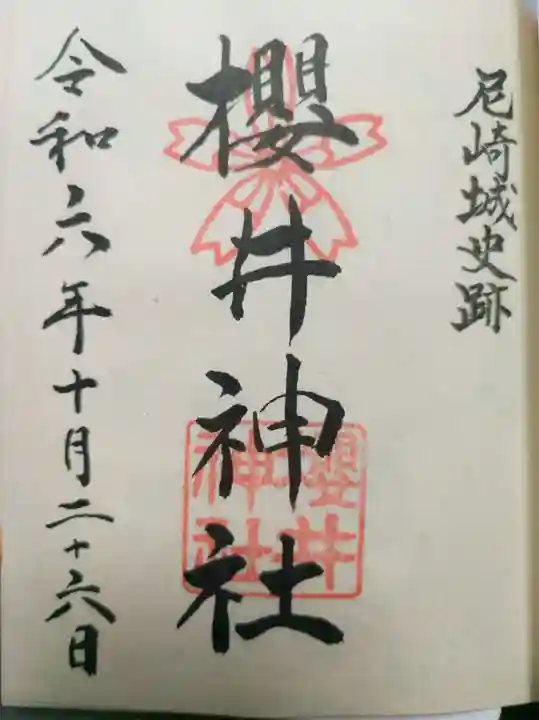 尼崎城史跡
櫻井神社
櫻井
神社
令和六年十月二十六日